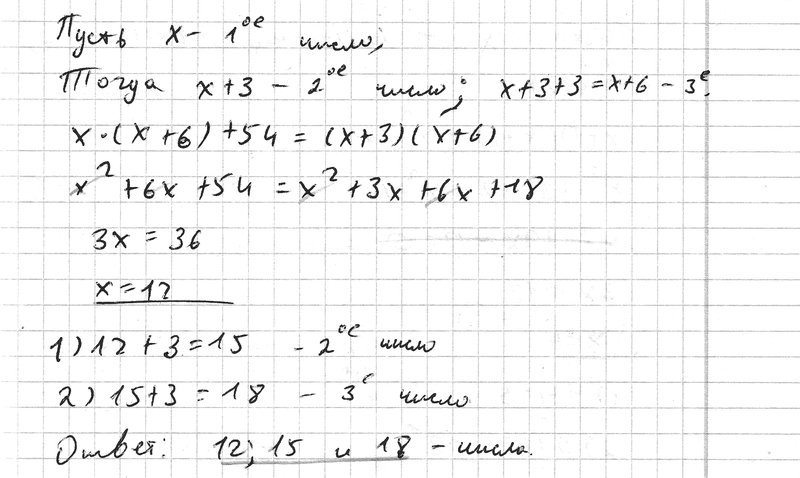 Пусть x - 1ое число;
Тогда x+3 - 2ое число; x+3+3=x+6 - 3е.
x·(x+6)+54=(x+3)(x+6)
x²+6x+54=x²+3x+6x+18
3x=36
x=12
1) 12+3=15 - 2ое число
2) 15+3=18 - 3е число
Ответ: 12; 15 и 18 - числа.